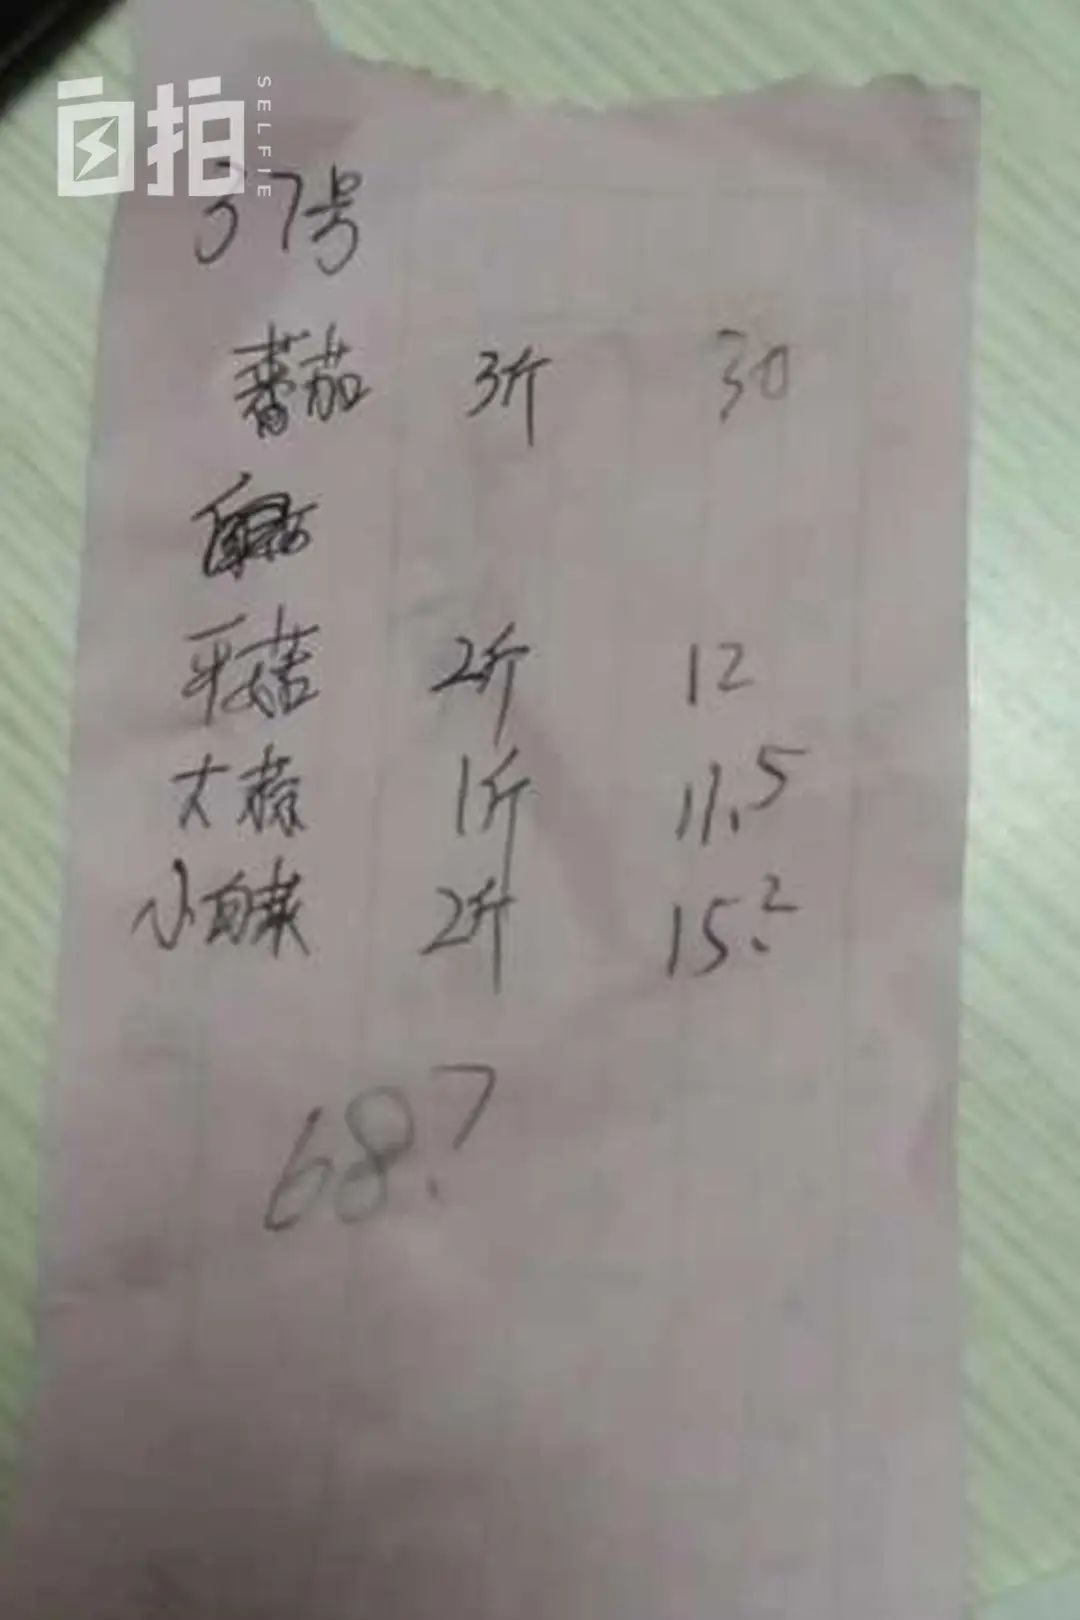 自拍 SELFIE
37号
番茄 3斤 30
平菇 2斤 12
大蒜 1斤 11.5
小白菜 2斤 15.2
68.7